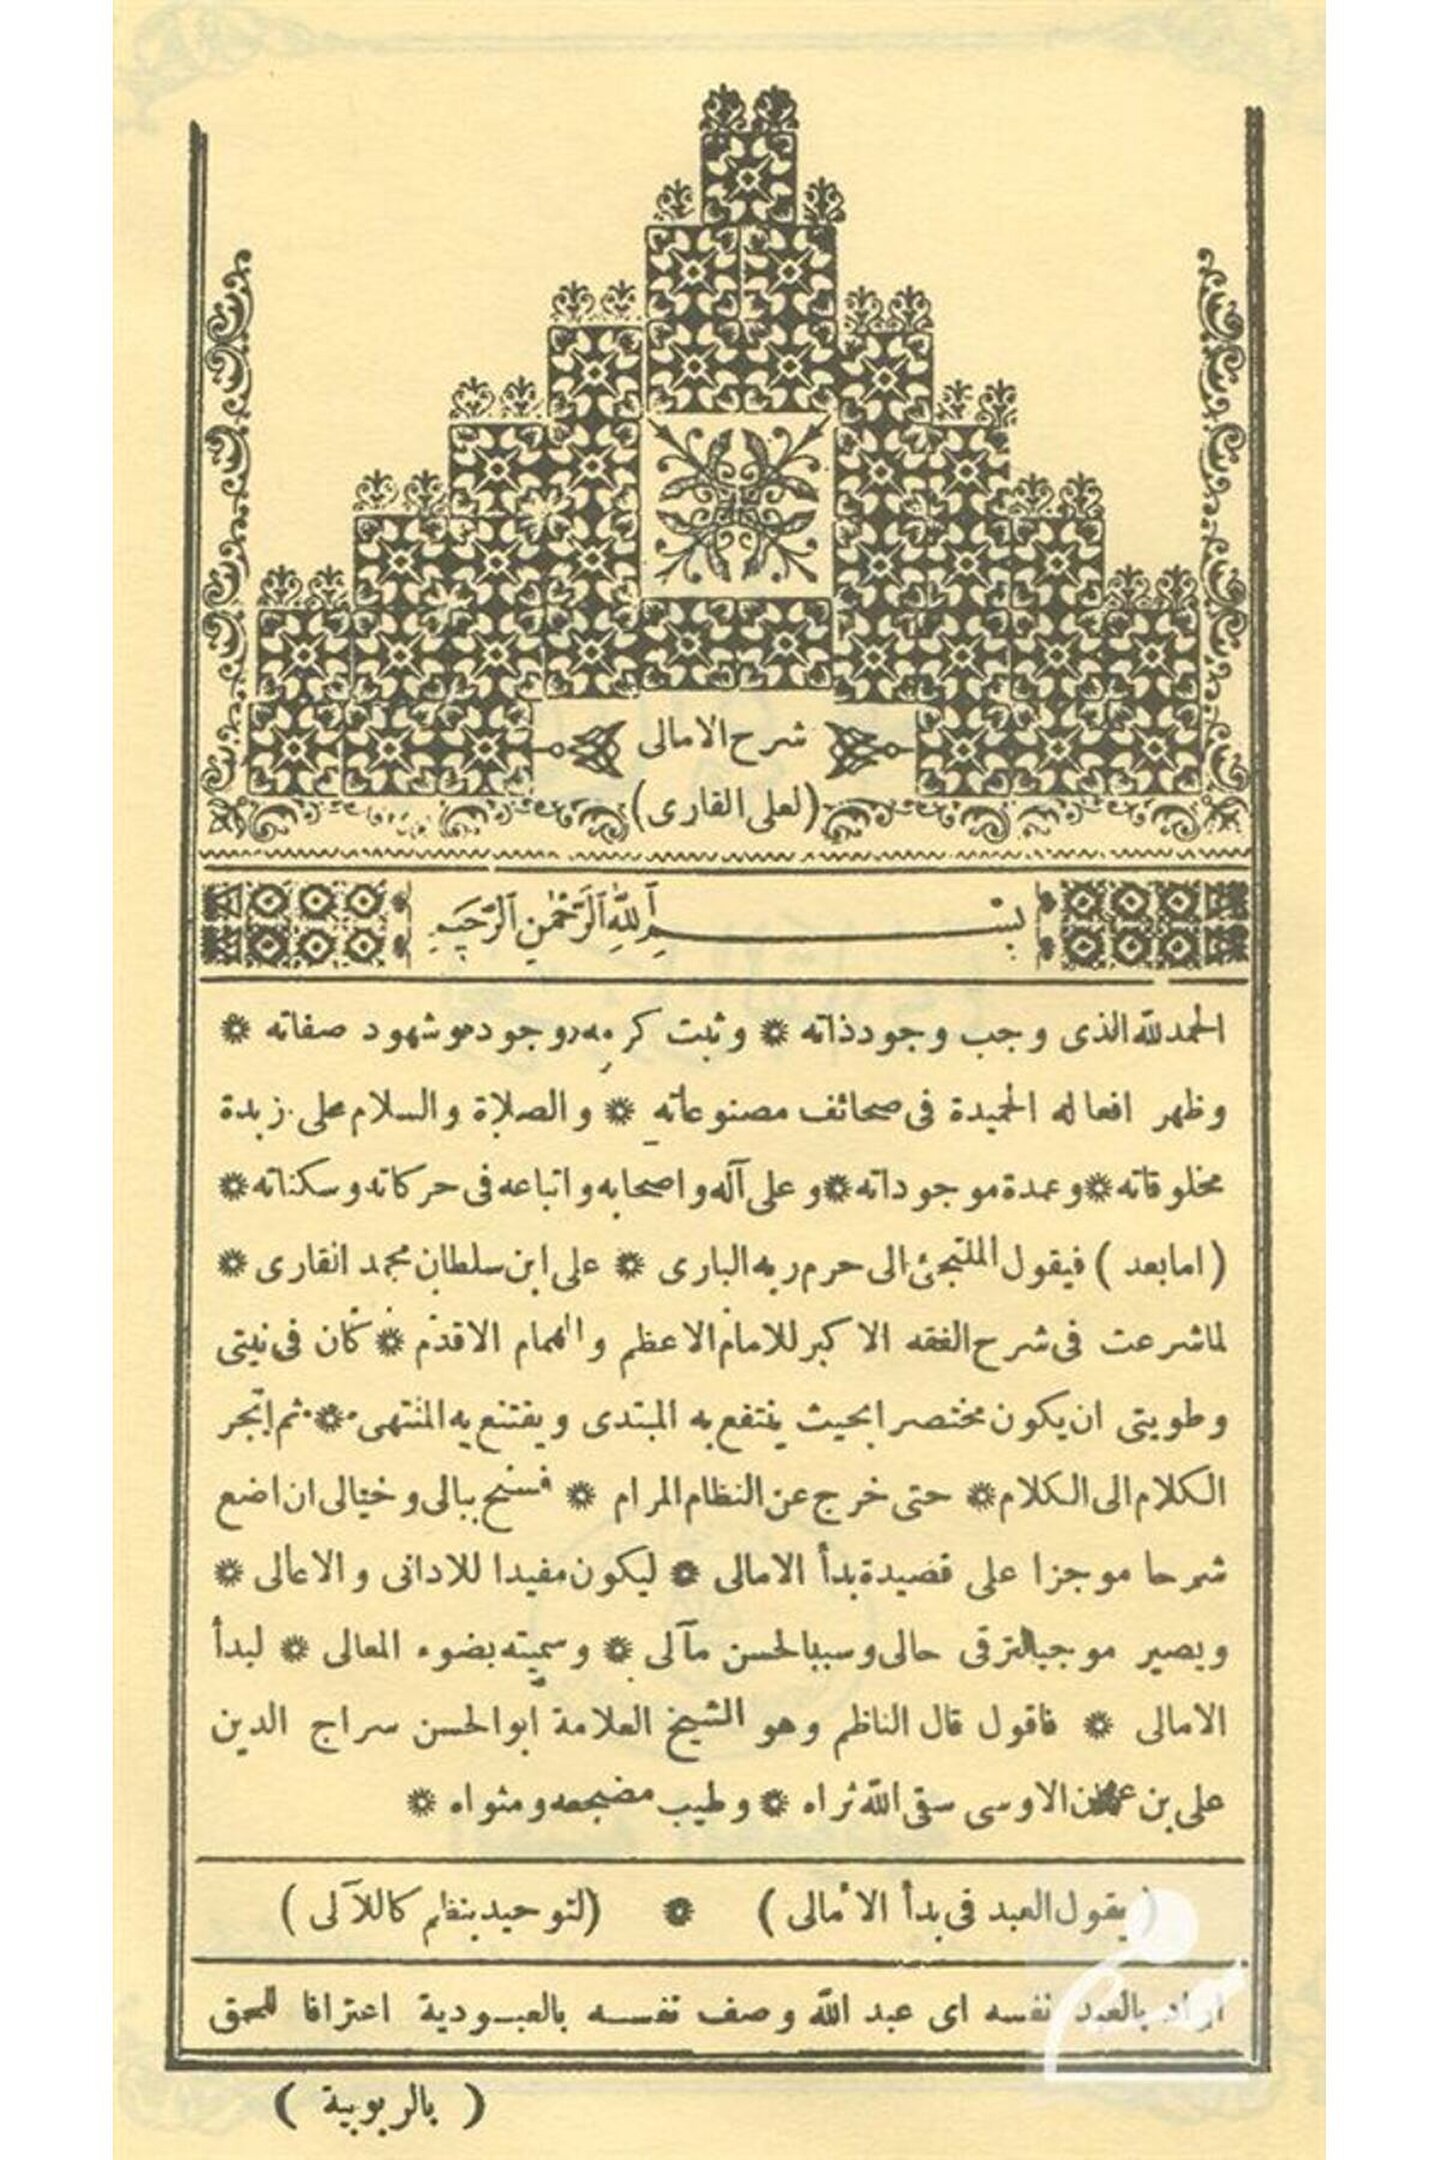 شرح الامالى
(لعلى القارى)
بسم الله الرحمن الرحيم
الحمد لله الذى وجب وجود ذاته ❋ وثبت كرمه وجوده وشهود صفاته ❋
وظهر افعاله الحميدة فى صحائف مصنوعاته ❋ والصلاة والسلام على زبدة
مخلوقاته ❋ وعمدة موجوداته ❋ وعلى آله واصحابه واتباعه فى حركاته وسكناته ❋
(اما بعد) فيقول الملتجئ الى حرم ربه البارى ❋ على ابن سلطان محمد القارى ❋
لما شرعت فى شرح الفقه الاكبر للامام الاعظم والهمام الاقدم ❋ كان فى نيتى
وطويتى ان يكون مختصرا بحيث ينتفع به المبتدى ويقتنع به المنتهى ❋ ثم انجر
الكلام الى الكلام ❋ حتى خرج عن النظام المرام ❋ فسنح ببالى وخيالى ان اضع
شرحا موجزا على قصيدة بدأ الامالى ❋ ليكون مفيدا للادانى والاعالى ❋
ويصير موجبا لترقى حالى وسببا لحسن مآلى ❋ وسميته بضوء المعالى ❋ لبدأ
الامالى ❋ فاقول قال الناظم وهو الشيخ العلامة ابو الحسن سراج الدين
على بن عثمان الاوسى سقى الله ثراه ❋ وطيب مضجعه ومثواه ❋
(يقول العبد فى بدأ الامالى) ❋ (لتوحيد بنظم كاللآلى)
اراد بالعبد نفسه اى عبد الله وصف نفسه بالعبودية اعترافا للحق
(بالربوبية)